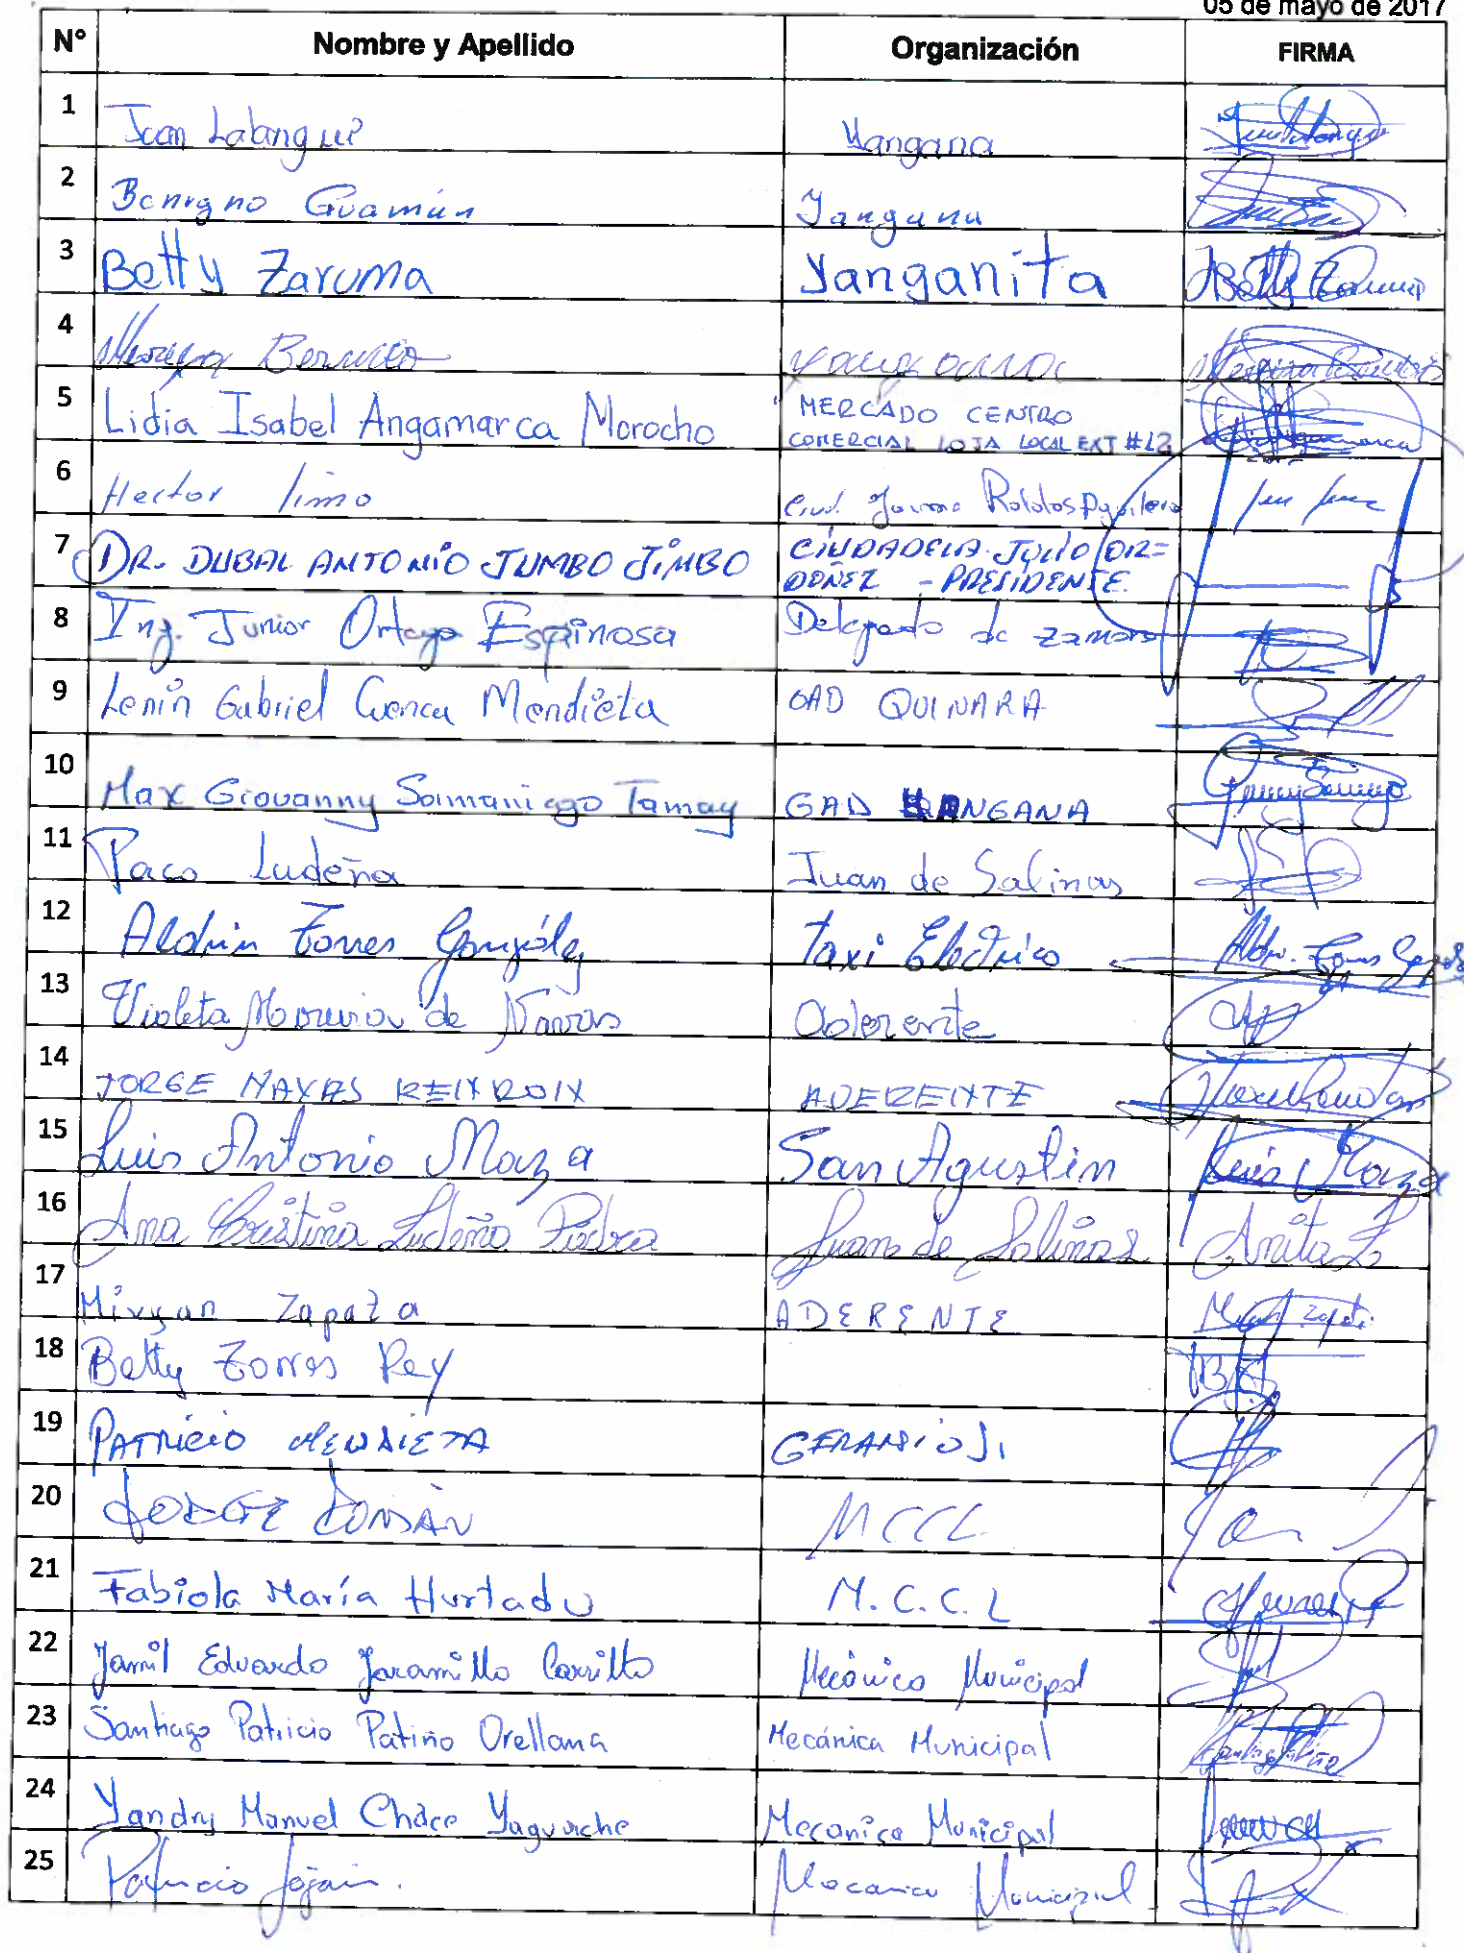 05 de mayo de 2017
N° Nombre y Apellido Organización FIRMA
1 Juan Labanguí Yangana
2 Benigno Guamán Yangana
3 Betty Zaruma Yanganita Betty Zaruma
4
5 Lidia Isabel Angamarca Morocho MERCADO CENTRO
COMERCIAL LOJA LOCAL EXT #12
6 Hector Jimo Ciud. Jaime Roldos Aguilera
7 DR. DUBAL ANTONIO JUMBO JIMBO CIUDADELA JULIO OR=
DOÑEZ - PRESIDENTE.
8 Ing. Junior Ortega Espinosa Delegado de Zamora
9 Lenin Gabriel Cuenca Mendieta GAD QUINARA
10 Max Giovanny Samaniego Tamay GAD YANGANA
11 Paco Ludeña Juan de Salinas
12 Aldrin Torres González Taxi Eléctrico
13 Violeta Moreira de Navas Aderente
14 JORGE NAVAS ADERENTE
15 Luis Antonio Maza San Agustin Luis Maza
16 Ana Cristina Ludeña Piedra Juan de Salinas Anita L
17 Miryan Zapata ADERENTE
18 Betty Torres Rey
19 PATRICIO MENDIETA
20 JORGE ROMÁN MCCL
21 Fabiola María Hurtado M.C.C.L
22 Jamil Eduardo Jaramillo Carrillo Mecánica Municipal
23 Santiago Patricio Patiño Orellana Mecánica Municipal
24 Yandry Manuel Chace Yaguache Mecanica Municipal
25 Patricio Mecanica Municipal